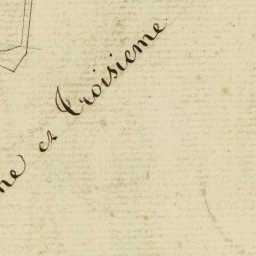 me et Troisieme